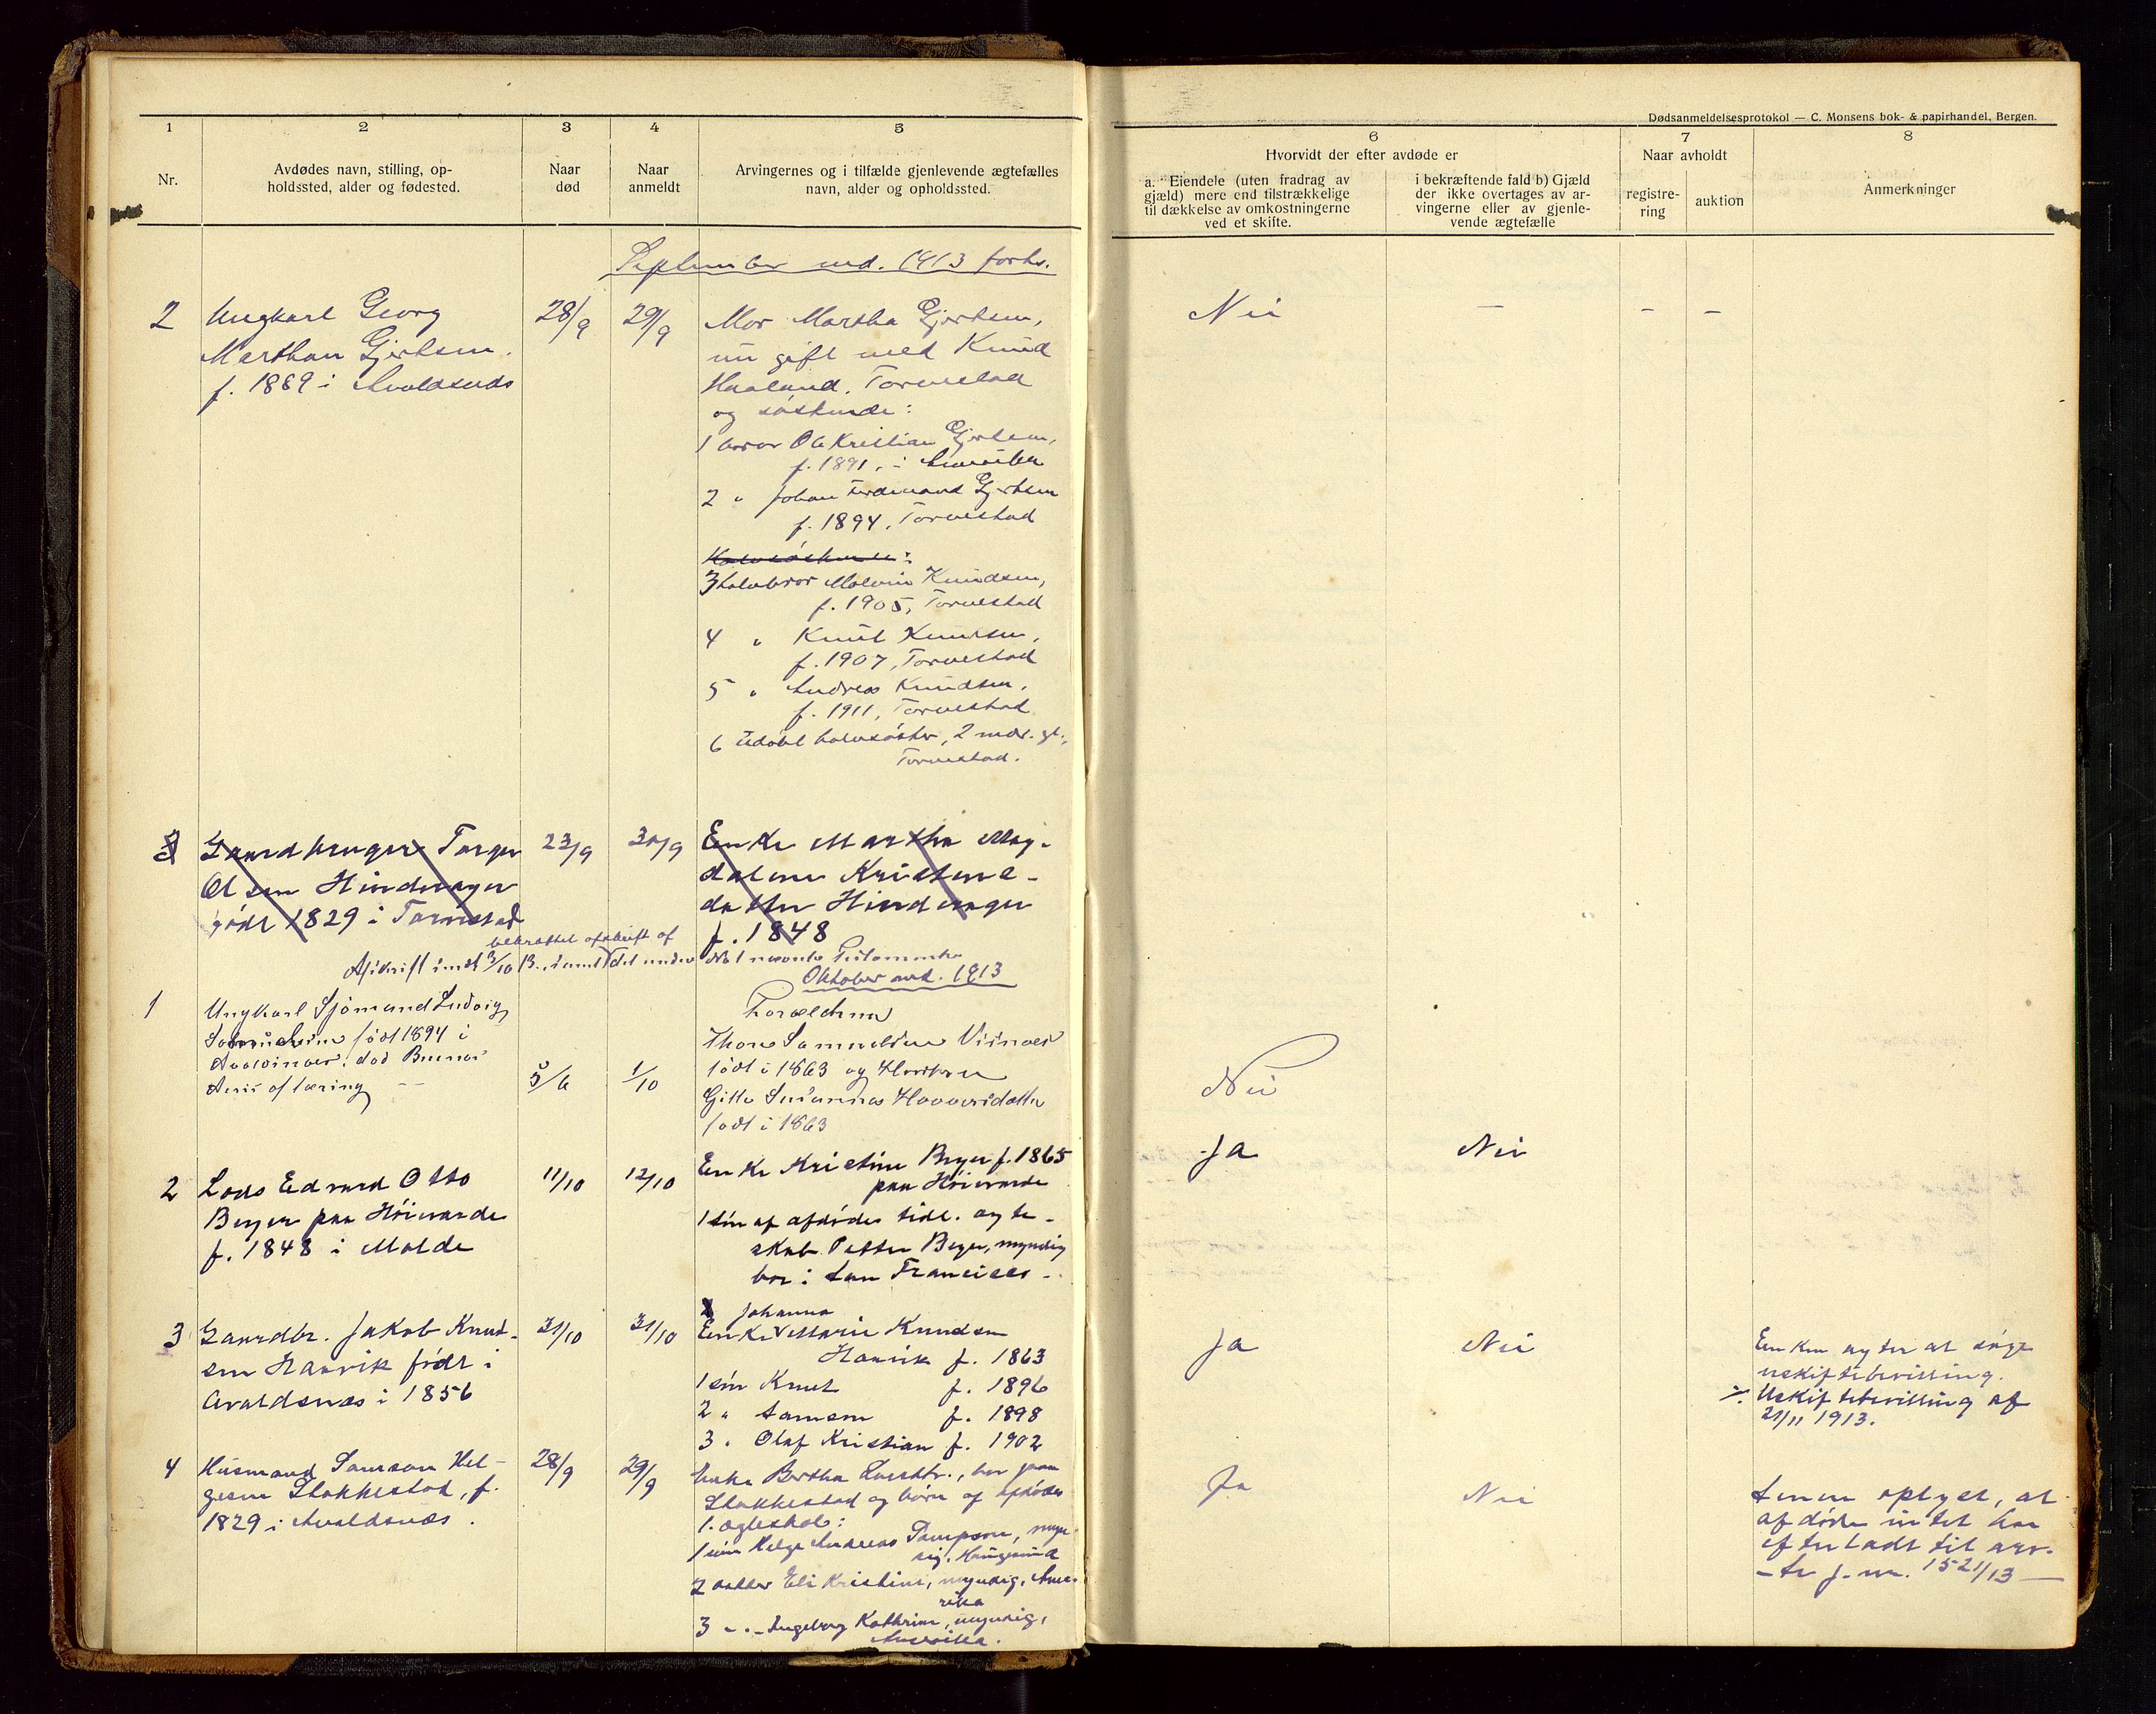 Dødsanmeldelsesprotokol — C. Monsens bok- & papirhandel, Bergen.
1 2 3 4 5 6 7 8
Nr.
Avdødes navn, stilling, op-
holdssted, alder og fødested.
Naar
død
Naar
anmeldt
Arvingernes og i tilfælde gjenlevende ægtefælles
navn, alder og opholdssted.
Hvorvidt der efter avdøde er
a. Eiendele (uten fradrag av
gjæld) mere end tilstrækkelige
til dækkelse av omkostningerne
ved et skifte.
i bekræftende fald b) Gjæld
der ikke overtages av ar-
vingerne eller av gjenle-
vende ægtefælle
Naar avholdt
registre-
ring
auktion
Anmerkninger
September md. 1913 forts.
2
Ungkarl Georg
Marthon Gjertsen.
f. 1889 i Avaldsnds
28/9
29/9
Mor Martha Gjertsen,
nu gift med Knud
Haaland, Torvestad
og søskende:
1 bror Ole Kristian Gjertsen,
f. 1891, i Amerika
2 " Johan Ferdinand Gjertsen
f. 1894, Torvestad
Halvsøskende:
3 halvbror Malvin Knudsen,
f. 1905, Torvestad
4 " Knut Knudsen,
f. 1907, Torvestad
5 " Andreas Knudsen,
f. 1911, Torvestad
6 udøbt halvsøster, 2 mdr. gl.,
Torvestad.
Nei
—
-
-
3
Gaardbruger Torger
Olsen Hinderager
født 1829 i Torvestad
23/9
30/9
Enke Martha Mag-
dalene Kristens-
datter Hinderager
f. 1848
bekræftet afskrift af
Afskrift sendt 3/10 13. samt det under
Oktober md. 1913
1
Ungkarl Sjømand Ludvig
født 1894 i
død Buenos
Aeris af tæring
5/6
1/10
Forældrene
Thore Samuelsen Visnæs
født i 1863 og Hustru
Gitte Susanna
født i 1863
Nei
2
Lods Edvard Otto
Beyer paa Høievarde
f. 1848 i Molde
11/10
12/10
Enke Kristine Beyer f. 1865
paa Høievarde
1 søn af afdødes tidl. ægte-
skab Petter Beyer, myndig
bor i San Francisco -
Ja
Nei
3
Gaardbr. Jakob Knut-
sen Haavik født i
Avaldsnæs i 1856
31/10
31/10
Johanna
Enke Marie Knudsen
Haavik f. 1863
1 søn Knut f. 1896
2 " Samson f. 1898
3 " Olaf Kristian f. 1902
Ja
Nei
Enken agter at søge
uskiftebevilling.
./. Uskiftebevilling af
21/11 1913.
4
Husmand Samson Hel-
gesen Stakkestad, f.
1829 i Avaldsnæs.
28/9
29/9
Enke Bertha Larsdtr., bor paa
Stakkestad og børn af afdødes
1. ægteskab:
1 søn Helge Andreas Sampson, myn-
dig, Haugesund
2 datter Eli Kristine, myndig, Ame-
rika
3 - " - Ingeborg Kathrine, myndig,
Amerika.
Ja
Nei
Senere oplyst, at
afdøde intet har
efterladt til arv-
- se j.-nr. 1521/13 —